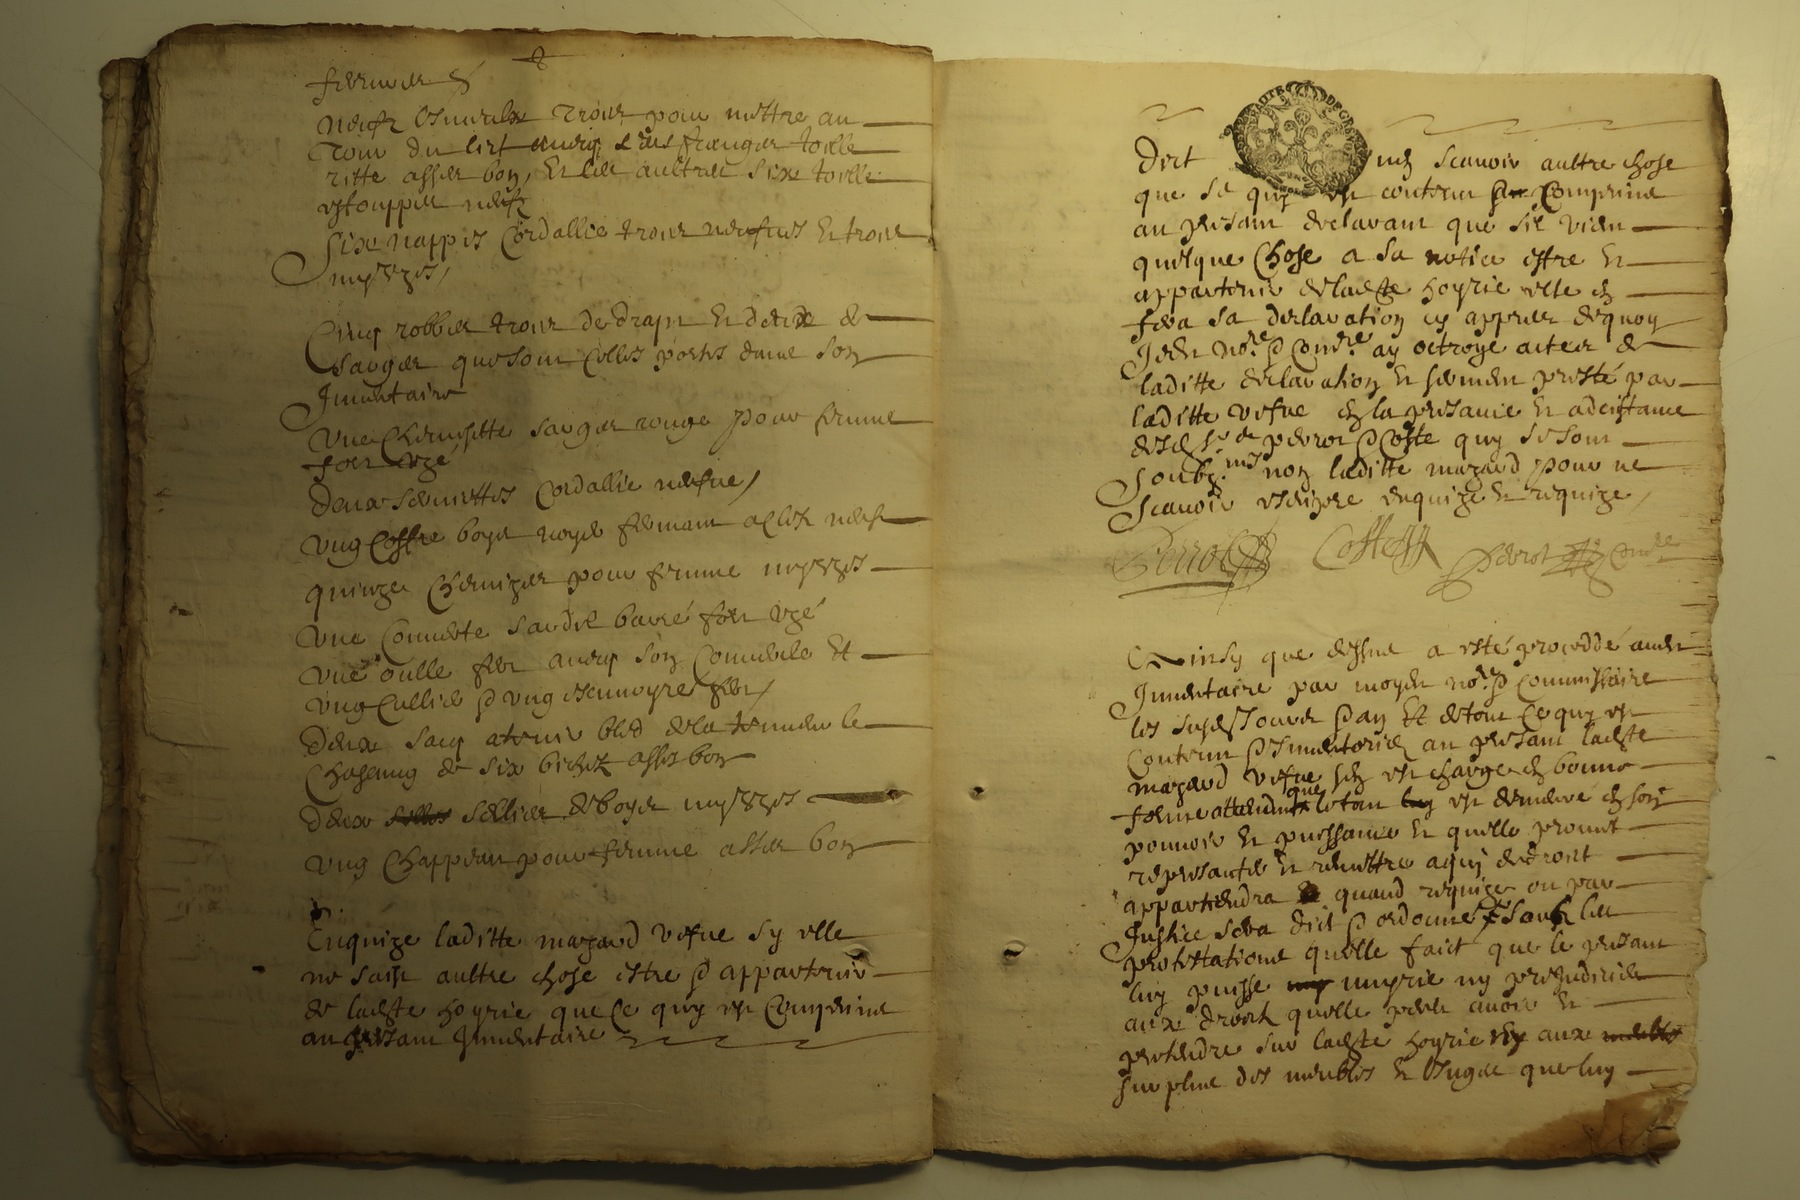 neufz linceulx trois pour mettre au
tour du lict avecq des franges toille
ritte asses bon, Et les aultres six toille
estouppes neufz
Six nappes Cordallie trois neufves Et trois
my uzes /
Cinq robbes trois de drapt Et deux de
sarges que sont celles portes dans son
Inventaire
Une Chemisette sarges rouge pour femme
fort uzé
deux serviettes Cordallie neufve /
ung Coffre boys noyer fermant a clefz neuf
quinze Chemizes pour femme my uzes
une Couverte sardit barré fort uzé
une oulle fer avecq son Couvercle Et
ung Cullier & ung fer /
deux sacq a tenir bled de la teneur le
Chascung de six bichetz asses bon
deux seilles de boys my uzes
ung Chappeau pour femme asses bon
Enquize laditte mazard vefve sy elle
ne sait aultre chose estre & appartenir
de ladite hoyrie que Ce quy est Comprins
au presant Inventaire
dict scavoir aultre chose
que se quy est contenu Comprins
au presant declarant que sil vient
quelque Chose a sa notice estre Et
appartenir de ladite hoyrie elle en
fera sa declaration cy appres de quoy
Je dit no.re & Com.re ay octroyé acte de
laditte declaration Et serment presté par
laditte vefve en la presance Et adcistance
desd. s.rs perrot & Coste quy se sont
soubz.nes non laditte mazard pour ne
scavoir escripre enquize Et requize /
Perrot Coste Perrot Com.re
Ainsy que dessus a esté proceddé audit
Inventaire par moydit no.re & Commissaire
les susd. jour & an Et de tout Ce quy est
Contenu & Inventorié au presant ladite
mazard vefve sen est charge en bonne
forme attendu que le tout est demeuré en son
pouvoir Et puissance Et quelle promet
representer Et remettre a quy de droit
appartiendra quand requize ou par
Justice sera dict & ordonné sauf les
protestations quelle faict que le presant
luy puisse nuyre ny prejudicier
aux droictz quelle peut avoir Et
pretendre sur ladite hoyrie aux
surplus des meubles Et linges que luy